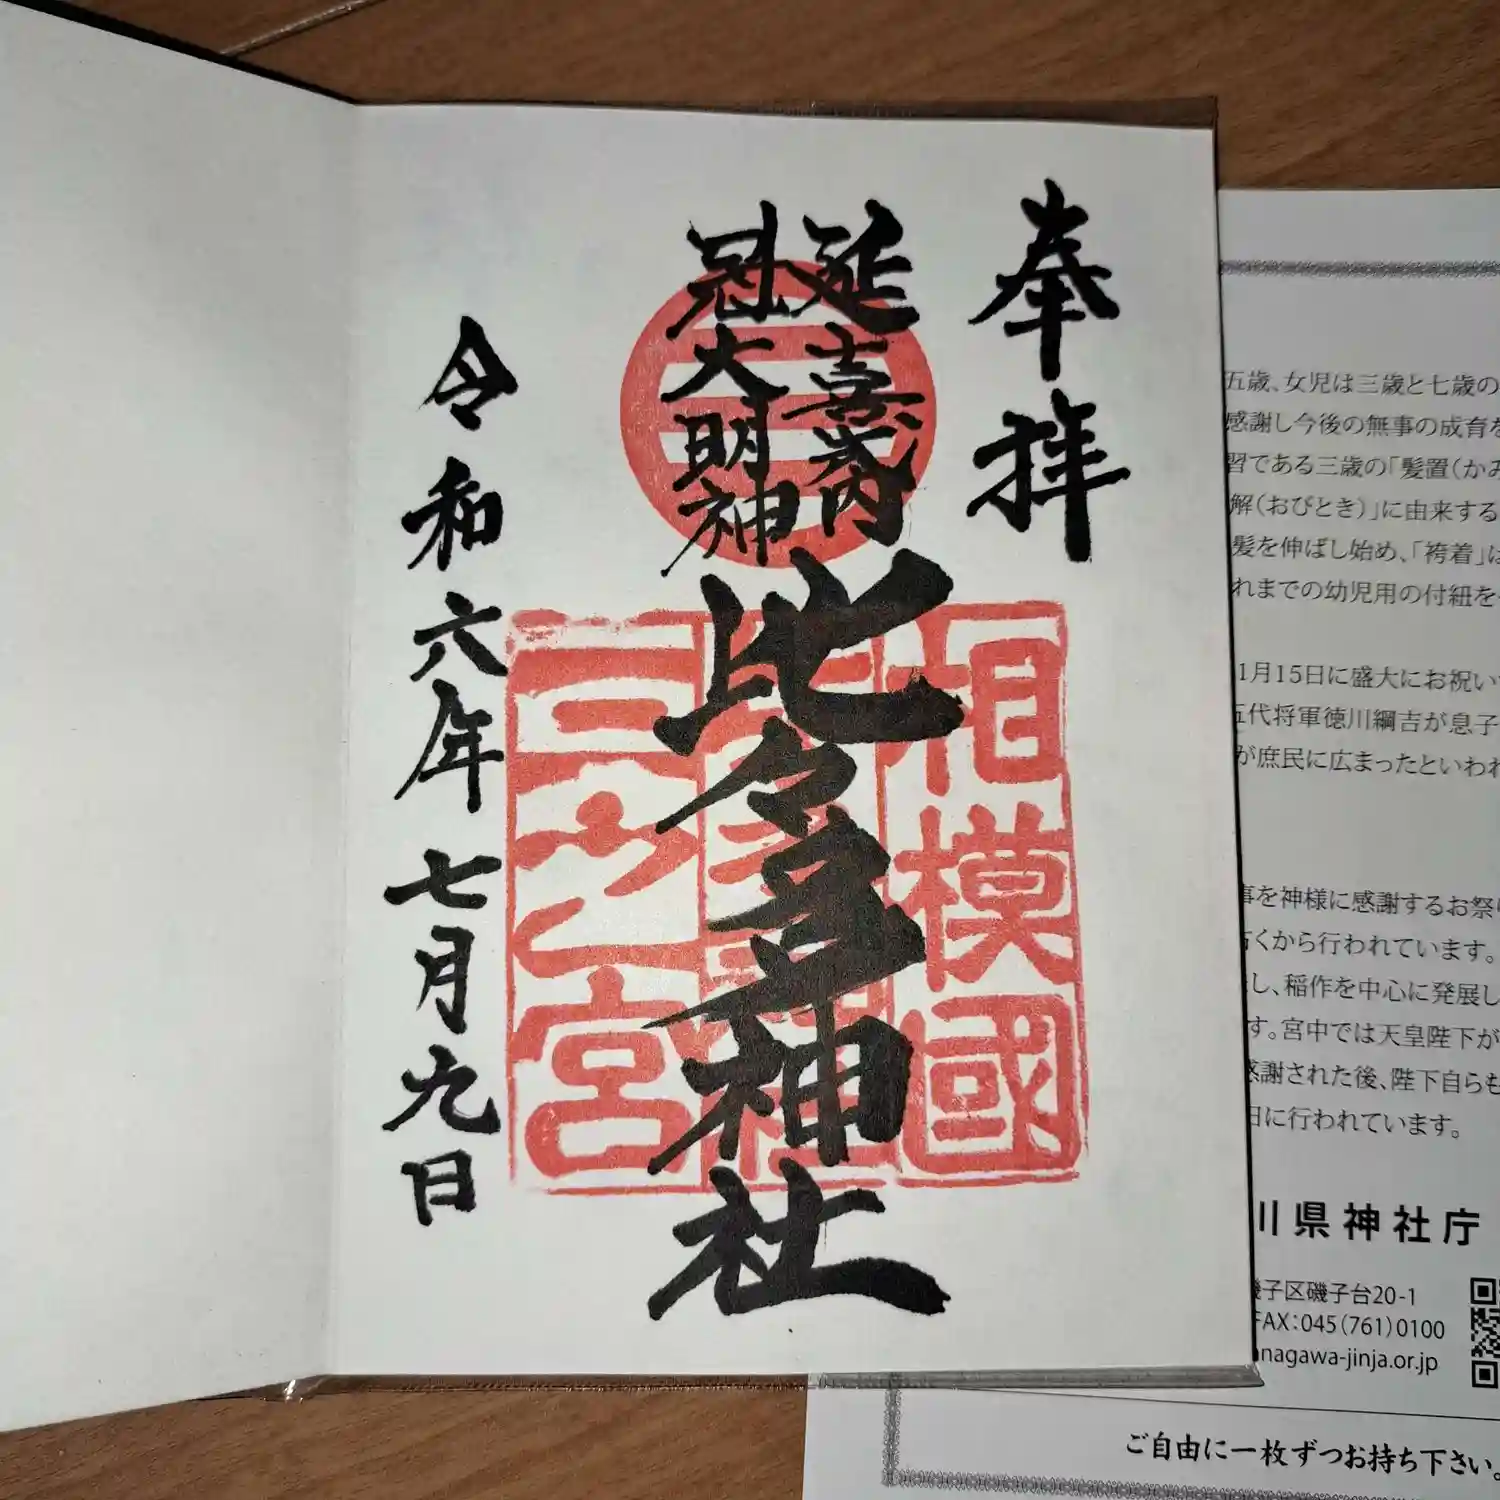 奉拝
延喜式内
冠大明神
比々多神社
令和六年七月九日
相模國
三之宮
五歳、女児は三歳と七歳の
感謝し今後の無事の成育を
習である三歳の「髪置(かみ
解(おびとき)」に由来する
髪を伸ばし始め、「袴着」は
れまでの幼児用の付紐を
1月15日に盛大にお祝い
五代将軍徳川綱吉が息子
が庶民に広まったといわれ
事を神様に感謝するお祭り
くから行われています。
し、稲作を中心に発展し
す。宮中では天皇陛下が
感謝された後、陛下自らも
日に行われています。
川県神社庁
磯子区磯子台20-1
FAX:045(761)0100
anagawa-jinja.or.jp
ご自由に一枚ずつお持ち下さい。